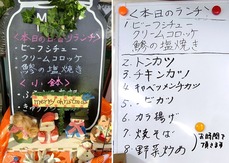 <本日の日替りランチ>
・ビーフシチュー
クリームコロッケ
鯵の塩焼き
<小鉢>
merry christmas
<本日のランチ>
1.ビーフシチュー
クリームコロッケ
鯵の塩焼き
2.トンカツ
3.チキンカツ
4.キャベツメンチカツ
エビカツ
6.カラ揚げ
7.焼そば
8.野菜炒め
お時間を
頂きます